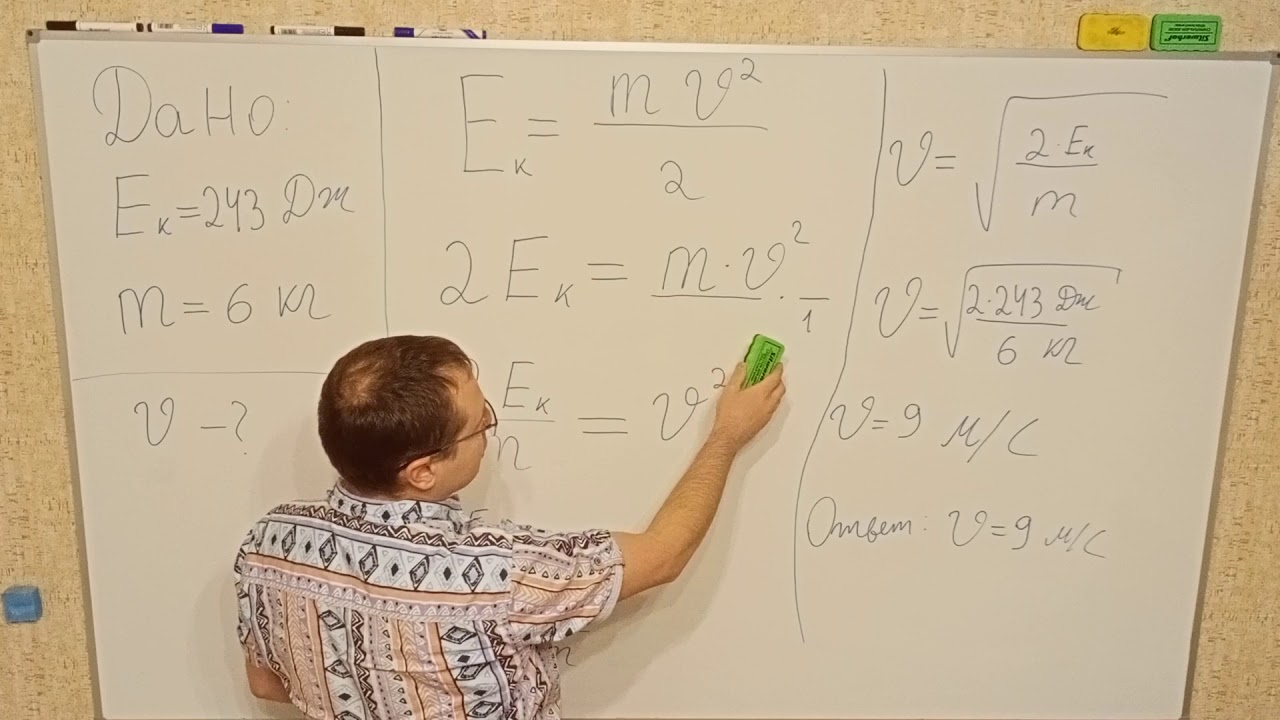 Дано:
Eк = 243 Дж
m = 6 кг
v – ?
Eк = m v² / 2
2 Eк = m · v² / · — / 1
Eк / m = v²
v = √(2 · Eк / m)
v = √(2 · 243 Дж / 6 кг)
v = 9 м/с
Ответ: v = 9 м/с
Silwerhof